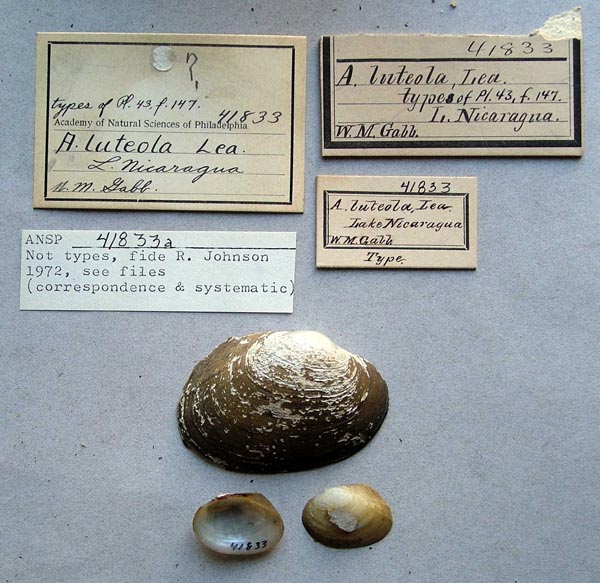 ?
types of Pl. 43, f. 147.
41833
Academy of Natural Sciences of Philadelphia
A. luteola Lea.
L. Nicaragua
W. M. Gabb.
41833
A. luteola, Lea.
types of Pl. 43, f. 147.
L. Nicaragua.
W. M. Gabb.
41833
A. luteola, Lea.
Lake Nicaragua
W. M. Gabb.
Type.
ANSP 41833a
Not types, fide R. Johnson
1972, see files
(correspondence & systematic)
41833